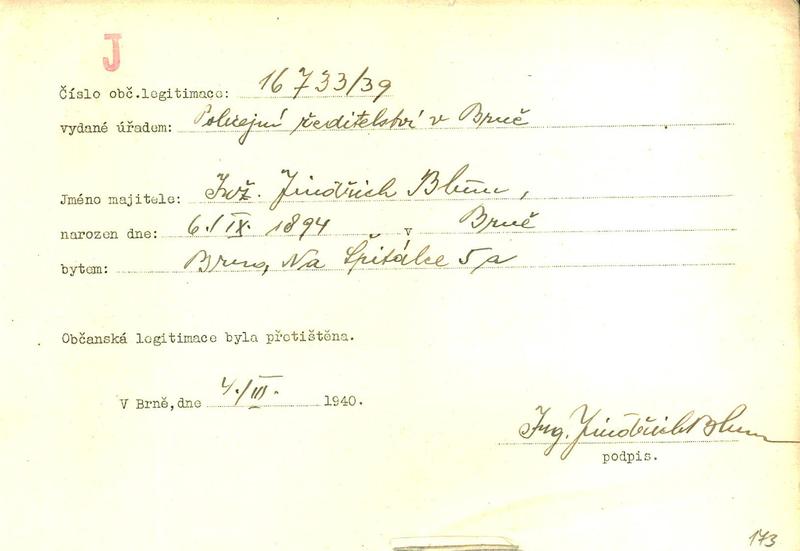 J
Číslo obč.legitimace: 16733/39
vydané úřadem: Policejní ředitelství v Brně
Jméno majitele: Inž. Jindřich Blum,
narozen dne: 6./IX. 1894 v Brně
bytem: Brno, Na Špitálce 5a
Občanská legitimace byla přetištěna.
V Brně, dne 4./III. 1940.
Ing. Jindřich Blum
podpis.
173